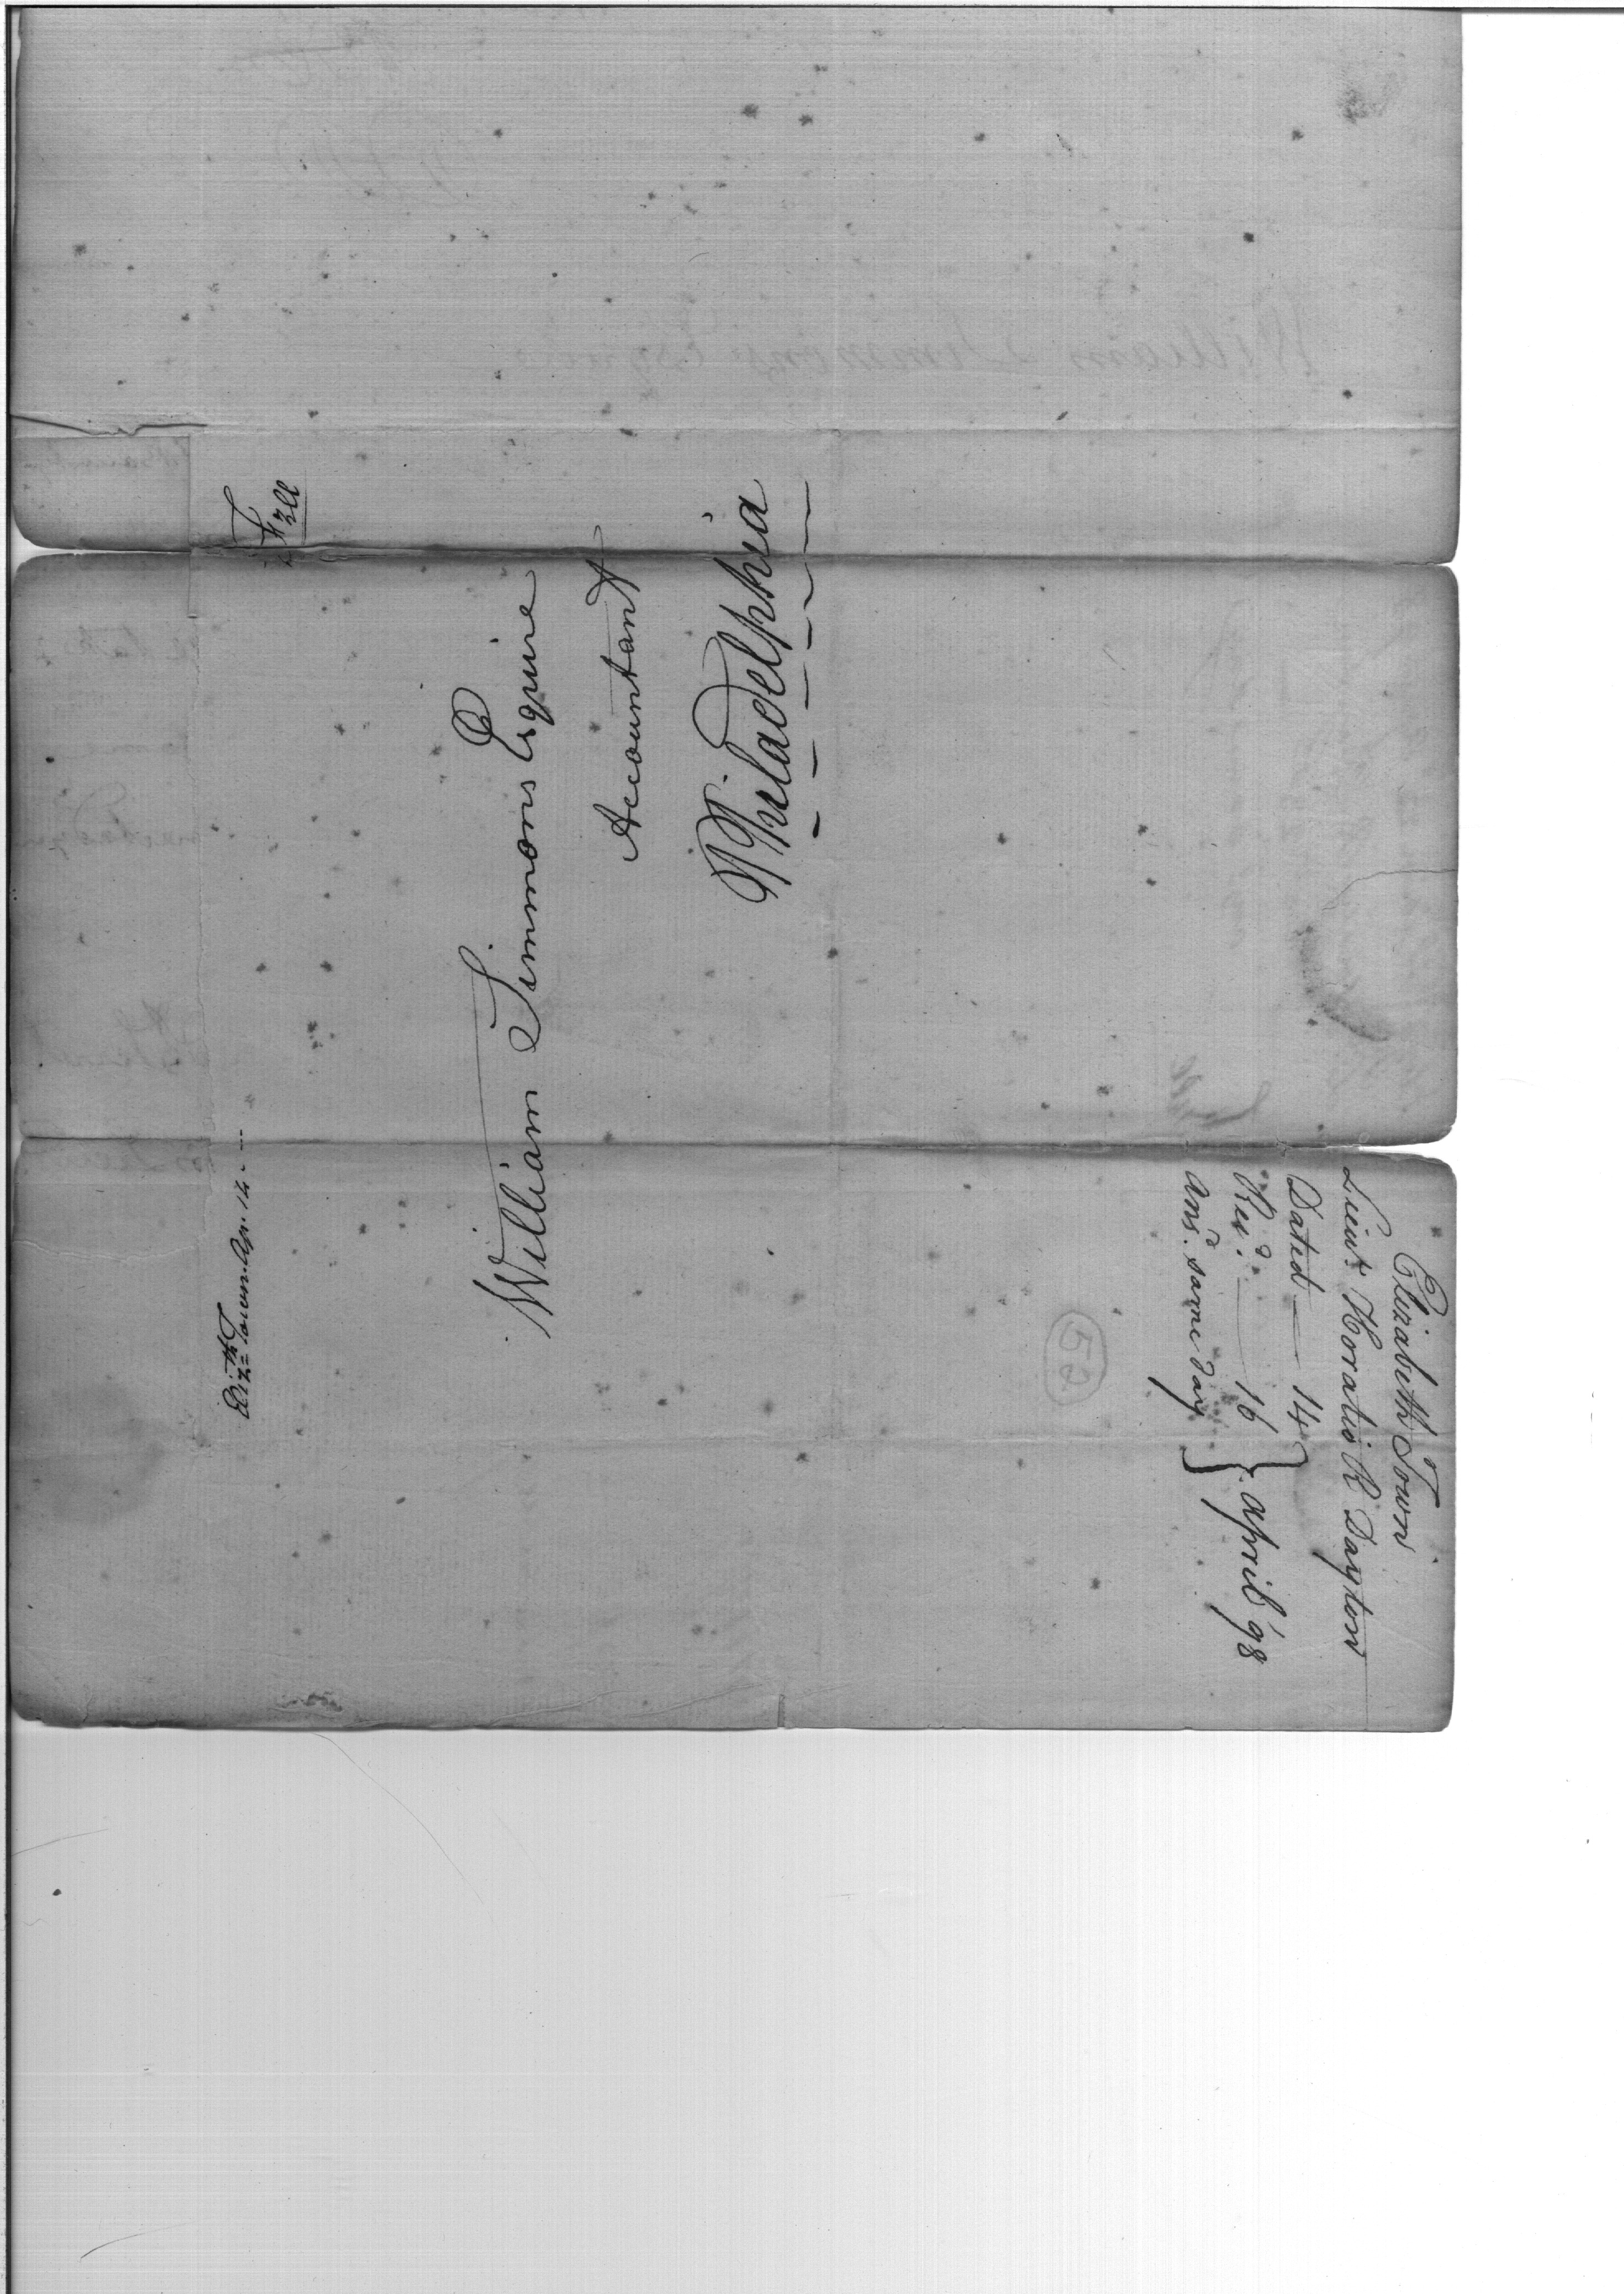 Eliz:th Town Apr. 14. --
Free
William Simmons Esquire
Accountant
Philadelphia
Elizabeth Town
Lieut. Horatio R Dayton
Dated — 14
Rec.d — 16 } april '98
ans.d same day
52